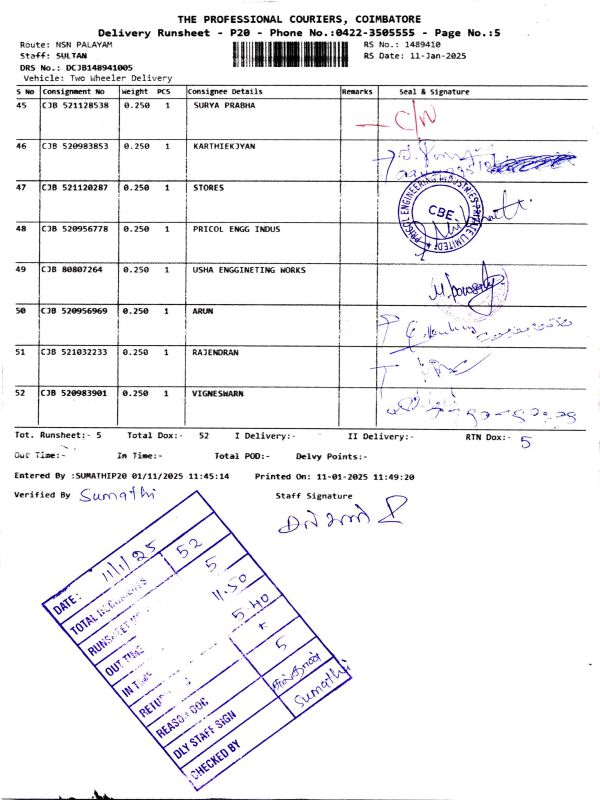 THE PROFESSIONAL COURIERS, COIMBATORE
Delivery Runsheet - P20 - Phone No.:0422-3505555 - Page No.:5
Route: NSN PALAYAM RS No.: 1489410
Staff: SULTAN RS Date: 11-Jan-2025
DRS No.: DCJB148941005
Vehicle: Two Wheeler Delivery
S No Consignment No Weight PCS Consignee Details Remarks Seal & Signature
45 CJB 521128538 0.250 1 SURYA PRABHA C/N
46 CJB 520983853 0.250 1 KARTHIEKJYAN
47 CJB 521120287 0.250 1 STORES
PRICOL ENGINEERING INDUSTRIES PRIVATE LIMITED
CBE
48 CJB 520956778 0.250 1 PRICOL ENGG INDUS
49 CJB 80807264 0.250 1 USHA ENGGINETING WORKS
50 CJB 520956969 0.250 1 ARUN
51 CJB 521032233 0.250 1 RAJENDRAN
52 CJB 520983901 0.250 1 VIGNESWARN
Tot. Runsheet:- 5 Total Dox:- 52 I Delivery:- II Delivery:- RTN Dox:- 5
Out Time:- In Time:- Total POD:- Delvy Points:-
Entered By :SUMATHIP20 01/11/2025 11:45:14 Printed On: 11-01-2025 11:49:20
Verified By Sumathi Staff Signature
DATE: 11/1/25
TOTAL 52
RUNSHEET 5
OUT TIME 11.50
IN 5.40
RETURN
REASON DOC 5
DLY STAFF SIGN சுல்தான்
CHECKED BY Sumathi